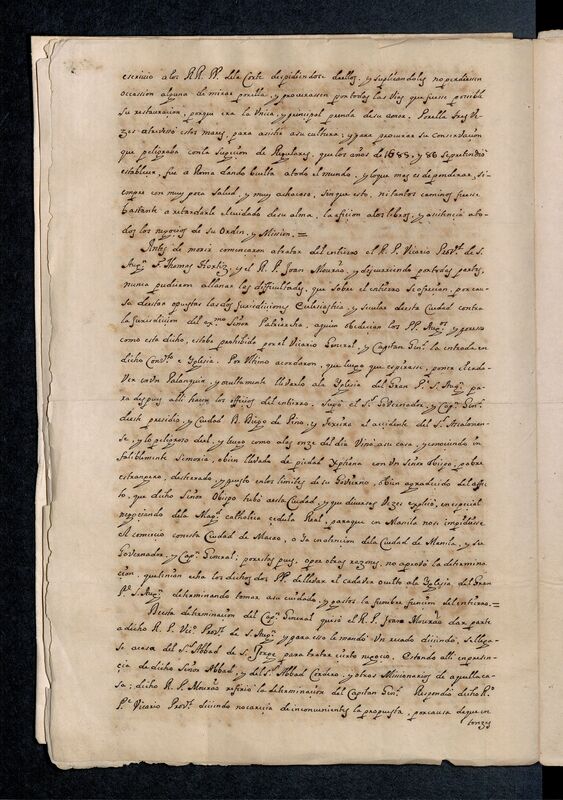 escrivio alos RR. PP. dela Corte despidiendose dellos, y suplicandoles no perdiessen
occassion alguna de mirar porella, y procurassen portodas las vias que fuesse possible
su restauracion, porque era la Unica, y principal prenda desu amor. Porella tres ve-
zes atravesso estos mares, para assistir asu cultura, y para procurar su Conservacion
que peligraba conla Sugecion de Regulares, que los años de 1688. y 86 sepretendio
establecer, fue a Roma dando buelta atodo el mundo, y loque mas es deponderar, si-
empre con muy poca Salud, y muy achacoso, sinque esto, ni tantos caminos fuesse
bastante a retardarle elcuidado desu alma, la aficion alos libros, y assistencia ato-
dos los negocios de su Ordin, y Mission. =
Antes de morir comencaron atratar del entierro el R. P. Vicario Prov.l de S.
Aug.n F. Thomas Hortiz, y el R. P. Joan Mourão, y discurriendo portodas partes,
nunca pudieron allanar las difficultades, que sobre el entierro se ofrecian, por cau-
sa de estar opuestas las dos Jurisdiciones Eclesiastica, y sicular desta Ciudad contra
la Jurisdicion del ex.mo Señor Patriarcha, aquien obedecian los PP. Aug.os y
como esta dicho, estaba prohibido por el Vicario General, y Capitan Gen.l la entrada en
dicho Conv.to e Yglesia. Por Ultimo acordaron, que luego que espirasse, poner el cada-
ver en Un Palanquin, y ocultamente llevarlo ala Yglesia del Gran P.e S. Aug.n pa-
ra despues alli hacer los officios del entierro. Supo el S.r Governador, y Cap.n Gen.l
deste presidio, y Ciudad D. Diego de Pino, y Texeira el accidente del S.r Ascalonen-
se, y lo peligroso del, y luego como alas onze del dia Vino asu casa, y conociendo in-
faliblemente semoria, obien llevado de piedad Xptiana con Un Señor Obispo, pobre
estrangero, desterrado, y puesto en los limites de su Govierno, obien agradecido del affec-
to, que dicho Señor Obispo tubo aesta Ciudad, y que diversas Vezes explicó, en especial
negociando dela Mag.d catholica cedula Real, paraque en Manila nose impidiesse
el comercio conesta Ciudad de Macao, o Ya en atencion dela Ciudad de Manila, y su
Governador, y Cap.n General; porestos pues, opor otras razones, no aprovó la determina-
cion, quetenian echa los dichos dos PP. dellevar el cadaver oculto ala Yglesia del Gran
P.e S. Aug.n determinando tomar asu cuidado, y gastos la funebre funcion del entierro. =
Desta determinacion del Cap.n General quisó el R. P. Joan Mourão dar parte
a dicho R. P. Vic.o Prov.l de S. Aug.n y para esso le mandó Un recado diciendo, sellega-
se acasa del S.r Abbad de S. Jorge para tratar cierto negocio. Estando alli enpresen-
cia de dicho Señor Abbad, y del S.r Abbad Cordero, y otros Missionarios de aquella ca-
sa; dicho R. P. Mourão refirio la determinacion del Capitan Gen.l Respondio dicho R.o
P.e Vicario Prov.l diciendo nocarecia de inconvenientes la propuesta, porcausa de que en-
tonzes